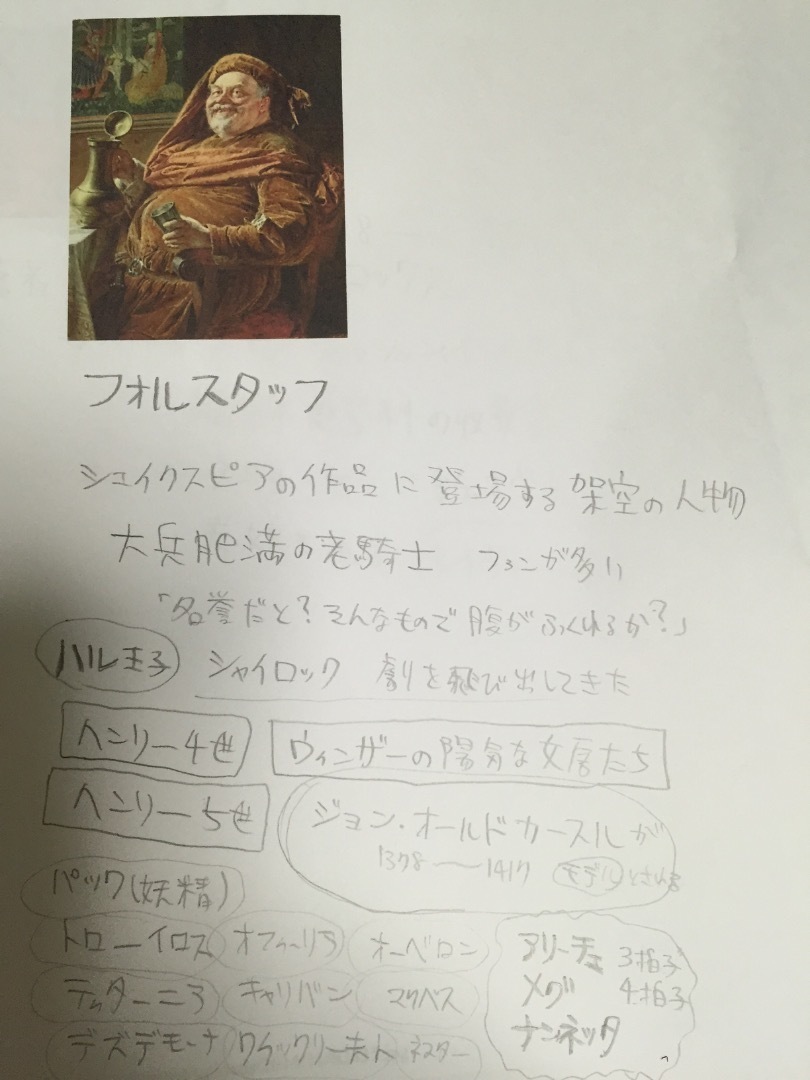 フォルスタッフ
シェイクスピアの作品に登場する架空の人物
大兵肥満の老騎士 ファンが多い
「名誉だと?そんなもので腹がふくれるか?」
ハル王子 シャイロック 劇を飛び出してきた
ヘンリー4世 ウィンザーの陽気な女房たち
ヘンリー5世 ジョン・オールドカースルが
1378〜1417 モデルとされる
パック(妖精)
トローイロス オフィーリア オーベロン
ティターニア キャリバン マクベス
デズデモーナ クイックリー夫人 ネスター
アリーチェ 3拍子
メグ 4拍子
ナンネッタ